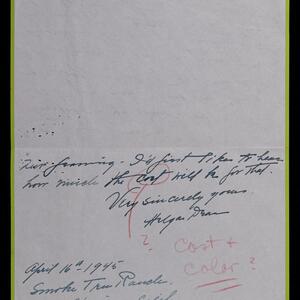 I'd first like to hear
how much the cost will be for that.
Very sincerely yours,
Helga Dean
?
cost +
color?
April 16th 1945
Smoke Tree Ranch,